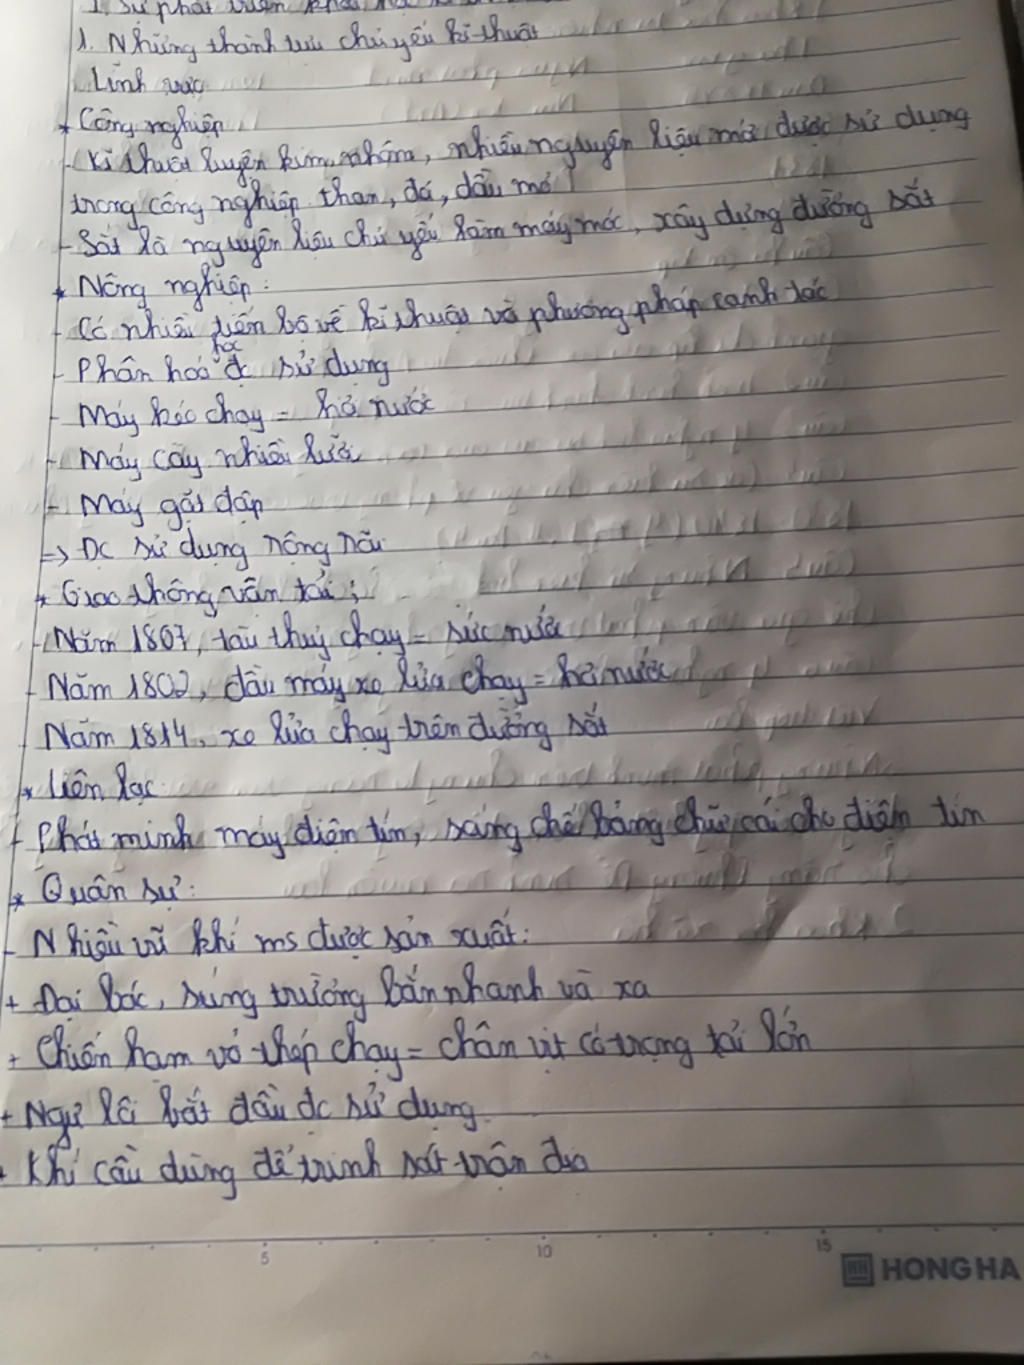 1. Sự phát triển khoa
1. Những thành tựu chủ yếu kĩ thuật
Lĩnh vực
* Công nghiệp
- Kĩ thuật luyện kim, nhiều nguyên liệu mới được sử dụng
trong công nghiệp than, đá, dầu mỏ
- Sắt là nguyên liệu chủ yếu làm máy móc, xây dựng đường sắt
* Nông nghiệp:
- Có nhiều tiến bộ về kĩ thuật và phương pháp canh tác
- Phân hoá học đc sử dụng
- Máy kéo chạy = hơi nước
- Máy cày nhiều lưỡi
- Máy gặt đập
-> Đc sử dụng rộng rãi
* Giao thông vận tải:
- Năm 1807, tàu thuỷ chạy = sức nước
- Năm 1802, đầu máy xe lửa chạy = hơi nước
Năm 1814, xe lửa chạy trên đường sắt
* Liên lạc
+ Phát minh máy điện tín, sáng chế bảng chữ cái cho điện tín
* Quân sự:
- Nhiều vũ khí ms được sản xuất:
+ Đại bác, súng trường bắn nhanh và xa
+ Chiến hạm vỏ thép chạy = chân vịt có trọng tải lớn
+ Ngư lôi bắt đầu đc sử dụng
+ Khí cầu dùng để trinh sát trận địa
5 10 15
HONG HA